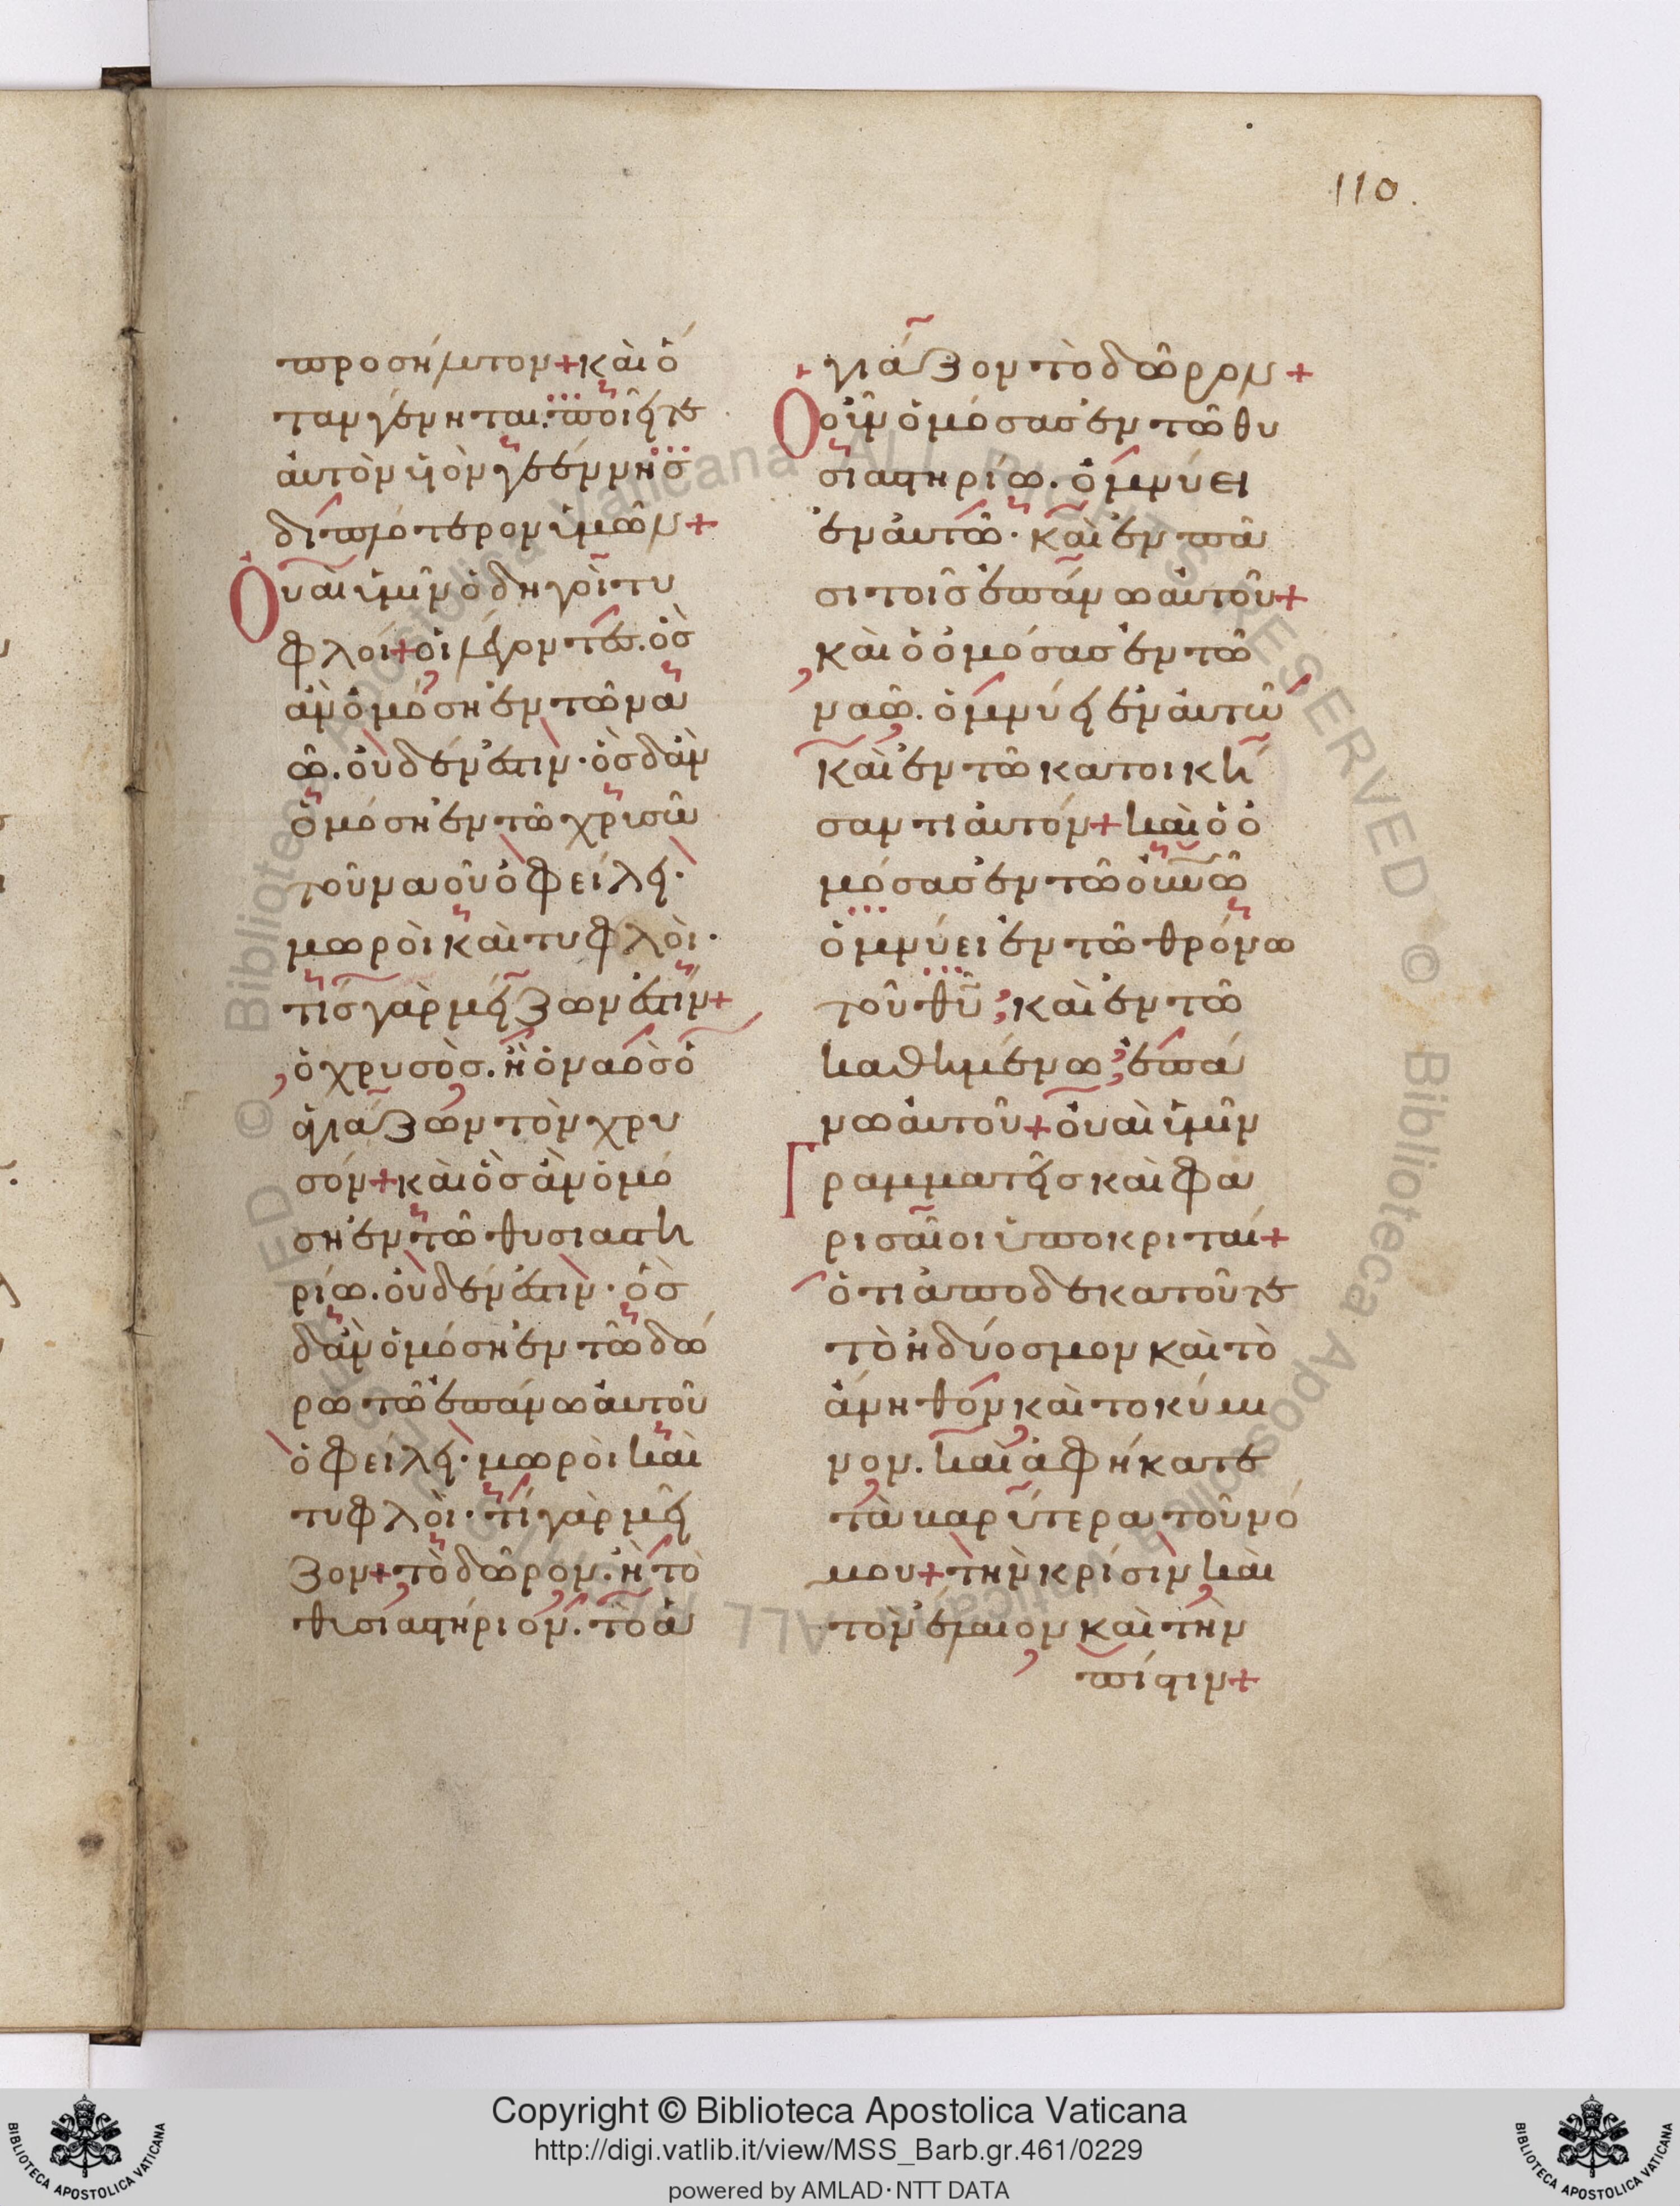 110.
προσήλυτον+καὶ ὅ
ταν γένηται. ποιεῖτε
ἀυτὸν ὑὸν γεέννησ
διπλότερον ὑμῶν+
Ουαὶ ὑμῖν ὁδηγοὶ τυ
φλοί+οἱ λέγοντεσ. ὃσ
ἀν ὀμόση ἐν τῶ να
ῶ. ὀυδέν ἐστιν· ὃσ δἀν
ὀμόση ἐν τῶ χρισῶ
τοῦ ναοῦ ὀφείλει·
μωροὶ καὶ τυφλοὶ·
τίσ γὰρ μείζων ἐστίν+
ὁ χρυσὸσ. ἢ ὁ ναὸσ ὁ
ἁγιάζων τὸν χρυ
σόν+καὶ ὃσ ἀν ὀμό
ση ἐν τῶ θυσιαστη
ρίω. ὀυδέν ἐστιν· ὃσ
δἀν ὀμόση ἐν τῶ δώ
ρω τῶ ἐπάνω ἀυτοῦ
ὀφείλει· μωροὶ καὶ
τυφλοὶ· τί γὰρ μεῖ
ζον+τὸ δῶρον. ἢ τὸ
θυσιαστήριον. τὸ ἁ
γιάζον τὸ δῶρον+
Ο οὖν ὀμόσασ ἐν τῶ θυ
σιαστηρίω. ὀμνύει
ἐν ἀυτῶ· καὶ ἐν πᾶ
σι τοῖσ ἐπάνω ἀυτοῦ+
καὶ ὁ ὀμόσασ ἐν τῶ
ναῶ. ὀμνύει ἐν ἀυτῶ
καὶ ἐν τῶ κατοικη
σαντι ἀυτόν+καὶ ὁ ὀ
μόσασ ἐν τῶ ὀυνῶ
ὀμνύει ἐν τῶ θρόνω
τοῦ θῦ, καὶ ἐν τῶ
καθημένω ἐπά
νω ἀυτοῦ+ὀυαὶ ὑμῖν
Γραμματεῖσ καὶ φα
ρισαῖοι ὑποκριταί+
ὅτι ἀποδεκατοῦτε
τὸ ἡδύοσμον καὶ τὸ
ἄνηθον καὶ το κύμι
νον. καὶ ἀφήκατε
τὰ βαρύτερα τοῦ νό
μου+τὴν κρίσιν καὶ
τὸν ἔλαιον καὶ τὴν
πίστιν+
Copyright © Biblioteca Apostolica Vaticana
http://digi.vatlib.it/view/MSS_Barb.gr.461/0229
powered by AMLAD·NTT DATA
BIBLIOTECA APOSTOLICA VATICANA
BIBLIOTECA APOSTOLICA VATICANA